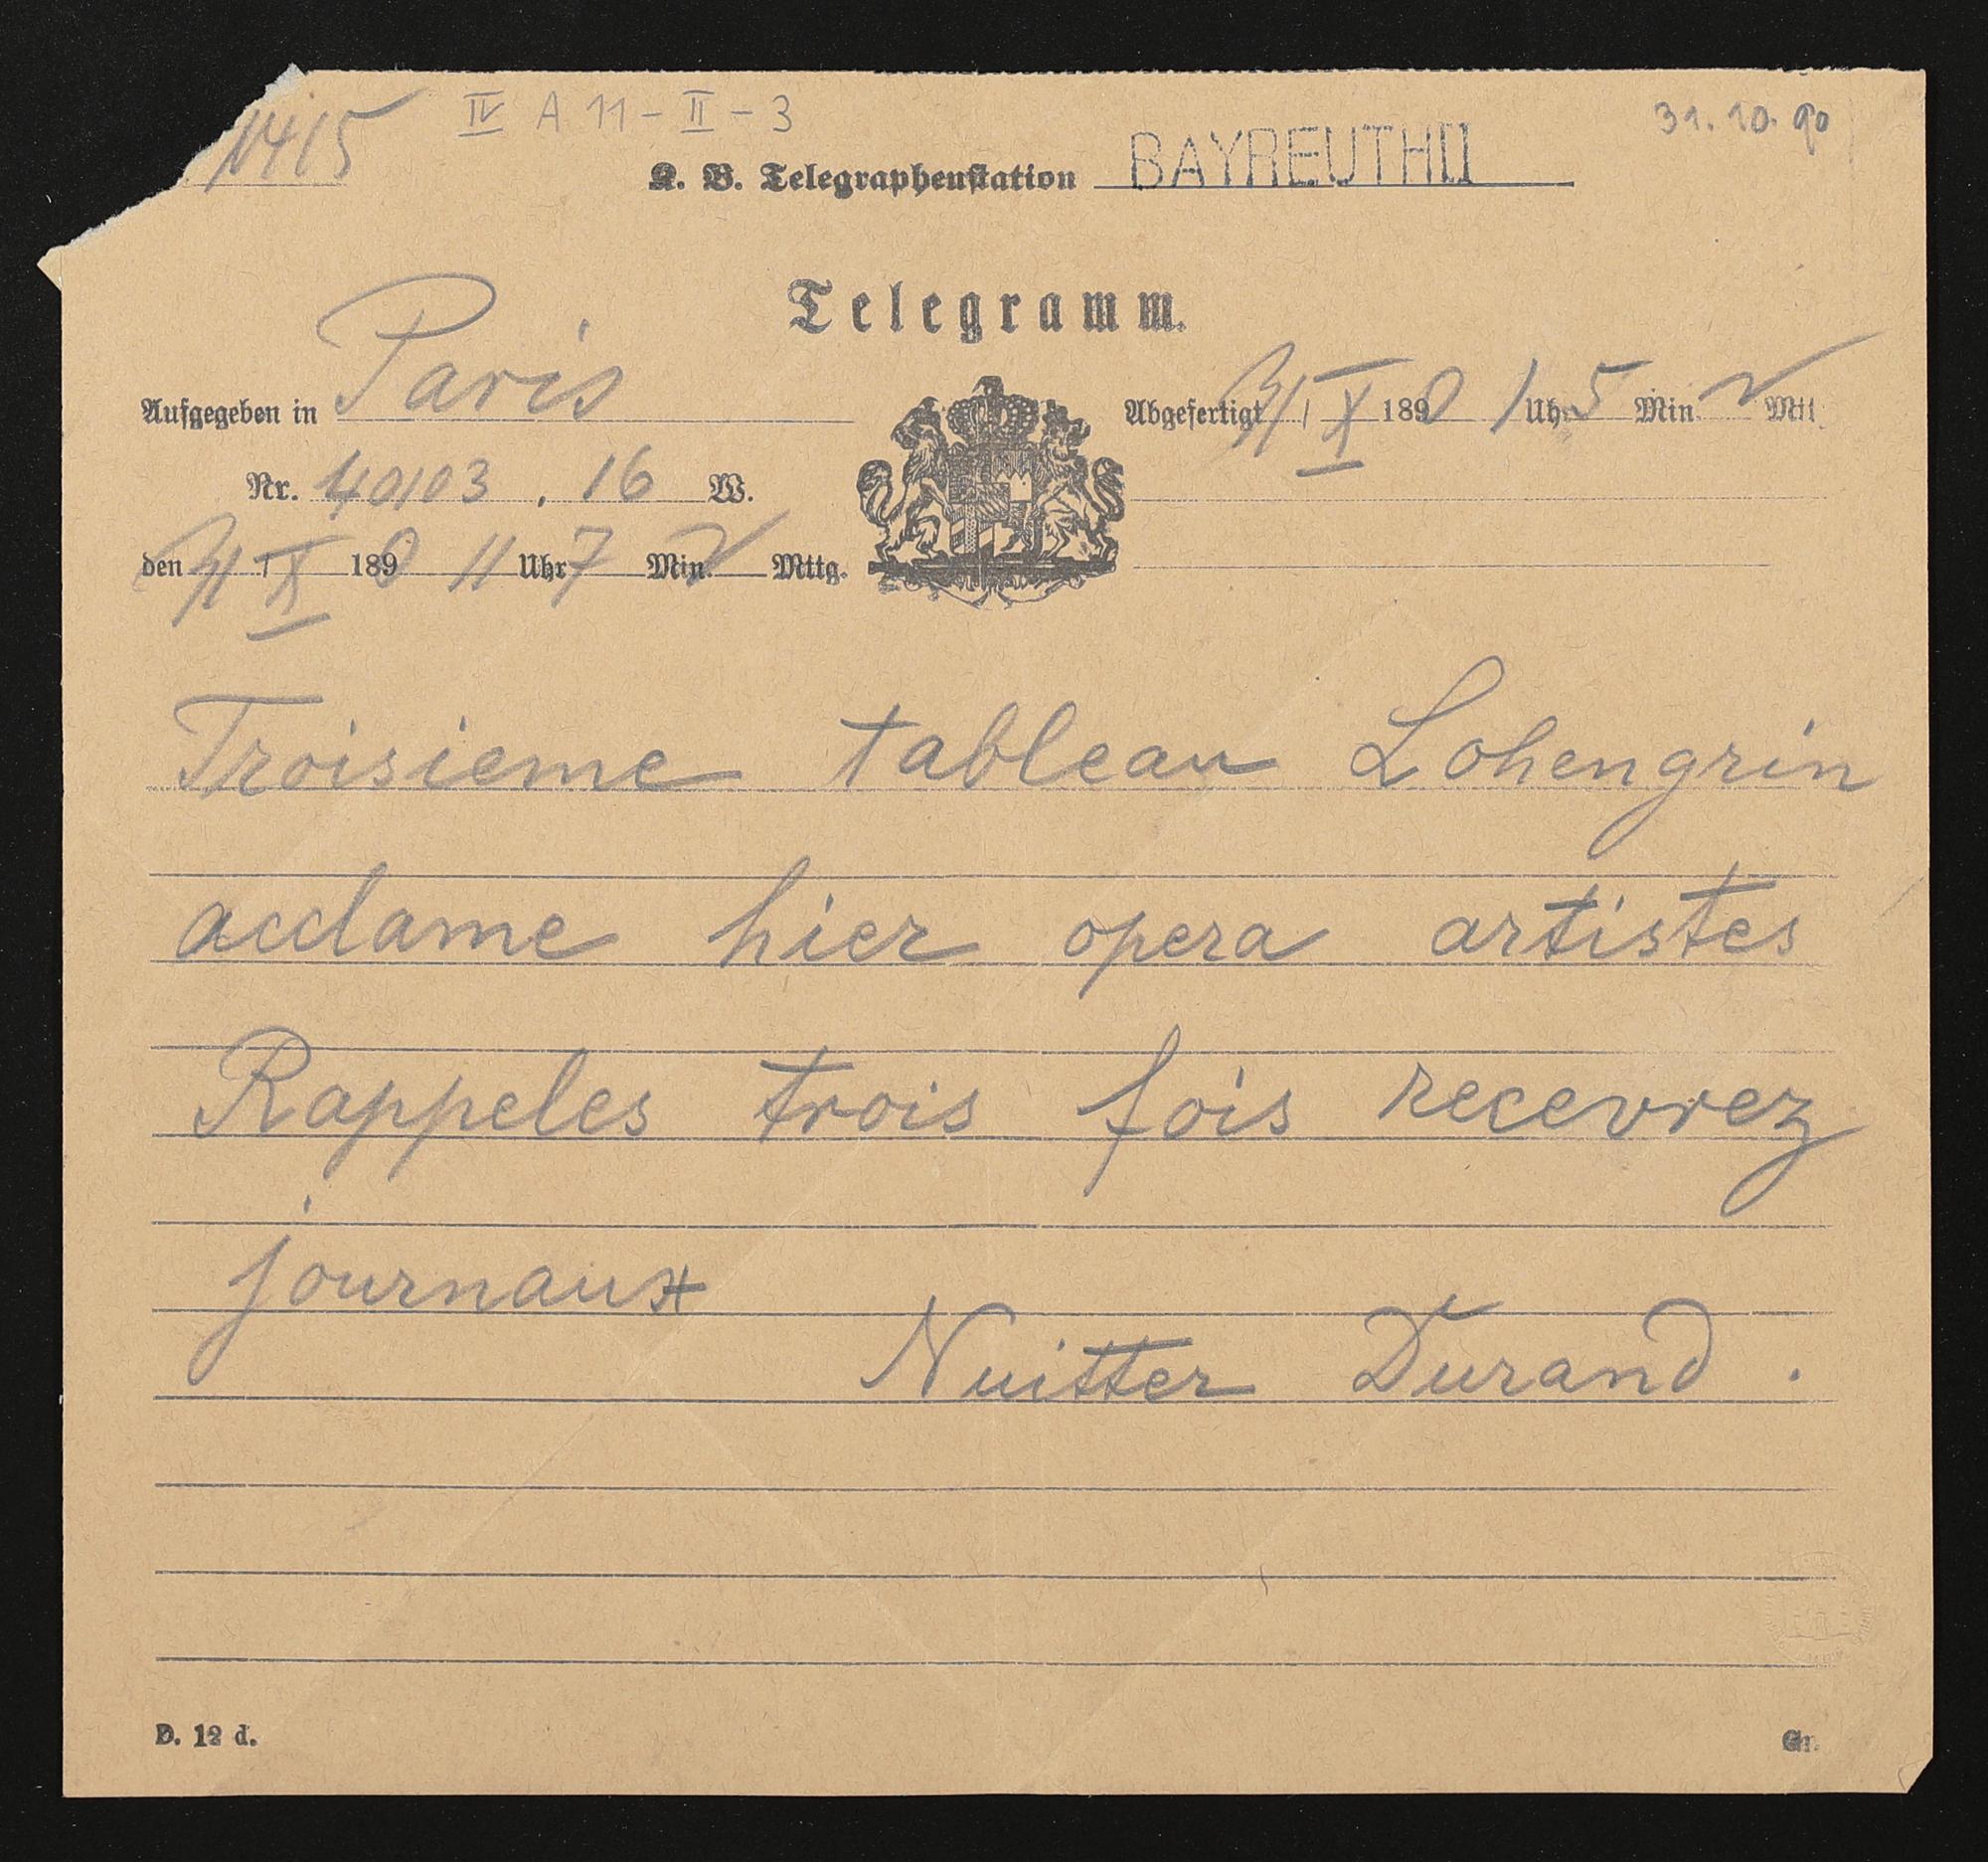 1415 IV A 11-II-3 31.10.90
K. B. Telegraphenstation BAYREUTH II
Telegramm.
Aufgegeben in Paris Abgefertigt 31/X 1890 1 Uhr 5 Min. V Mtt.
Nr. 40103, 16 W.
den 31/X 1890 11 Uhr 7 Min. V Mttg.
Troisieme tableau Lohengrin
acclame hier opera artistes
Rappeles trois fois recevrez
journaux
Nuitter Durand.
D. 12 d. Gr.